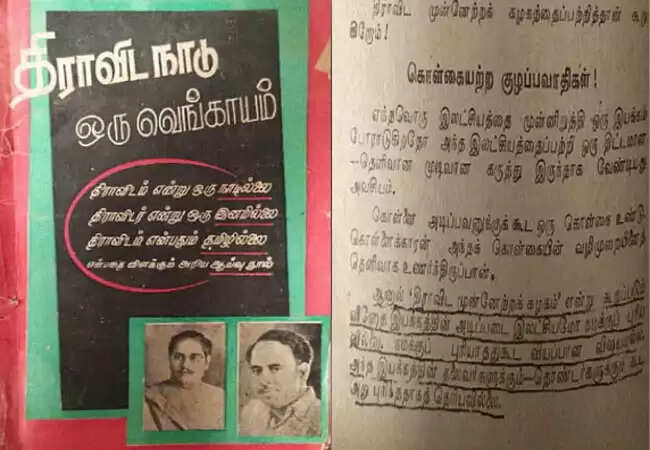 திராவிட நாடு
ஒரு வெங்காயம்
திராவிடம் என்று ஒரு நாடில்லை
திராவிடர் என்று ஒரு இனமில்லை
திராவிடம் என்பதும் தமிழில்லை
என்பதை விளக்கும் அரிய ஆய்வு நூல்
திராவிட முன்னேற்றக் கழகத்தைப்பற்றித்தான் கூறு
இறோம்!
கொள்கையற்ற குழப்பவாதிகள்!
எந்தவொரு இலட்சியத்தை முன்னிறுத்தி ஒரு இயக்கம்
போராடுகிறதோ அந்த இலட்சியத்தைப்பற்றி ஒரு திட்டமான
—தெளிவான முடிவான கருத்து இருந்தாக வேண்டியது
அவசியம்.
கொள்ளை அடிப்பவனுக்குகூட ஒரு கொள்கை உண்டு.
கொள்ளைக்காரன் அந்தக் கொள்கையின் வழிமுறையினைத்
தெளிவாக உணர்ந்திருப்பான்.
ஆனால் 'திராவிட முன்னேற்றக் கழகம்' என்று கூறப்படும்
இயக்கத்தின் அடிப்படை இலட்சியமோ நமக்குப் புரிய
வில்லை. நமக்குப் புரியாததுகூட வியப்பான விஷயமல்ல.
அந்த இயக்கத்தின் தலைவர்களுக்கும்—தொண்டர்களுக்கும் கூட
அது புரிந்ததாகத் தெரியவில்லை.